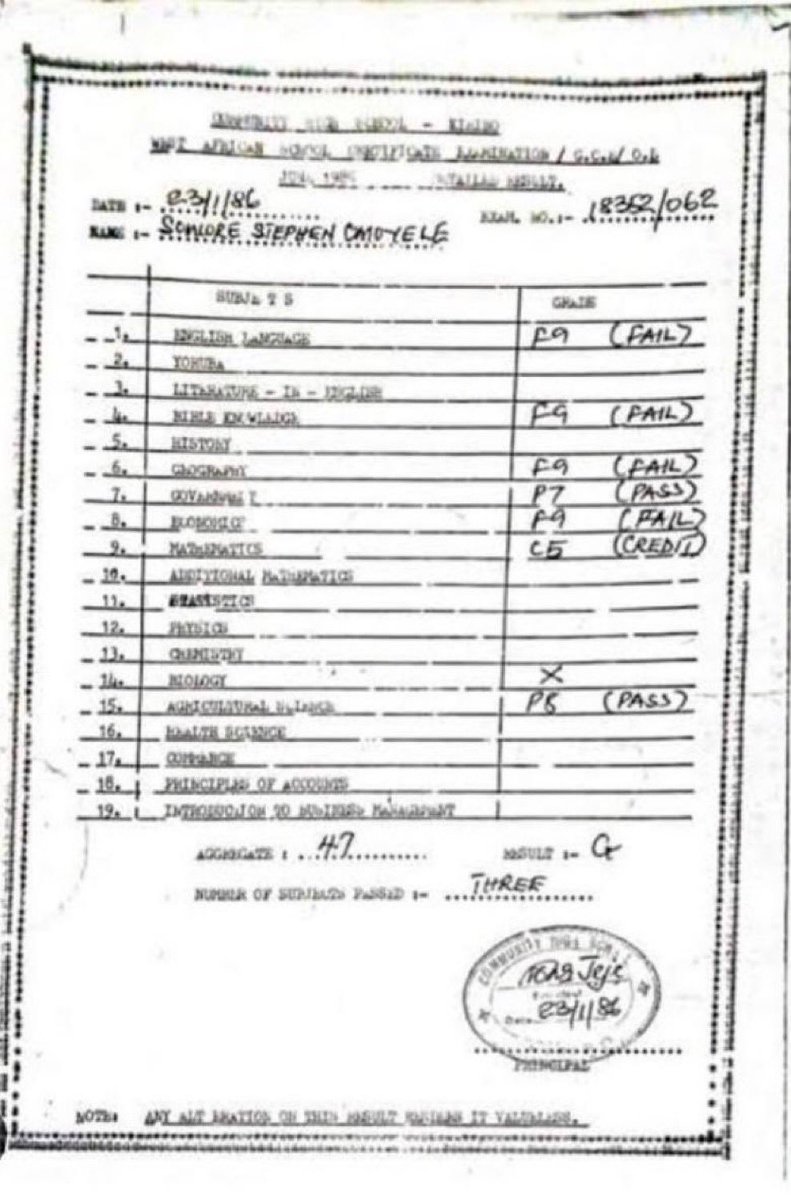 COMMUNITY HIGH SCHOOL -
WEST AFRICAN SCHOOL CERTIFICATE EXAMINATION / G.C.E/ O.L
JUNE 1985 DETAILED RESULT.
DATE :- 23/1/86
EXAM. NO.:- 18352/062
NAME :- STEPHEN OMOYELE
SUBJE T S GRADE
1. ENGLISH LANGUAGE F9 (FAIL)
2. YORUBA
3. LITERATURE - IN - ENGLISH
4. BIBLE KNOWLEDGE F9 (FAIL)
5. HISTORY
6. GEOGRAPHY F9 (FAIL)
7. GOVERNMENT P7 (PASS)
8. ECONOMICS F9 (FAIL)
9. MATHEMATICS C5 (CREDIT)
10. ADDITIONAL MATHEMATICS
11. STATISTICS
12. PHYSICS
13. CHEMISTRY
14. BIOLOGY X
15. AGRICULTURAL SCIENCE P8 (PASS)
16. HEALTH SCIENCE
17. COMMERCE
18. PRINCIPLES OF ACCOUNTS
19. INTRODUCTION TO BUSINESS MANAGEMENT
AGGREGATE : 47 RESULT :- G
NUMBER OF SUBJECTS PASSED :- THREE
COMMUNITY HIGH SCHOOL
23/1/86
PRINCIPAL
NOTE: ANY ALT ERATION ON THIS RESULT RENDERS IT VALUELESS.